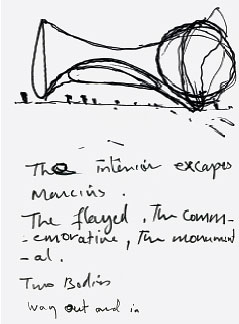 The interior excapes
Marcius.
The flayed, The comm-
-emorative, The monument
-al.
Two Bodies
Way out and in